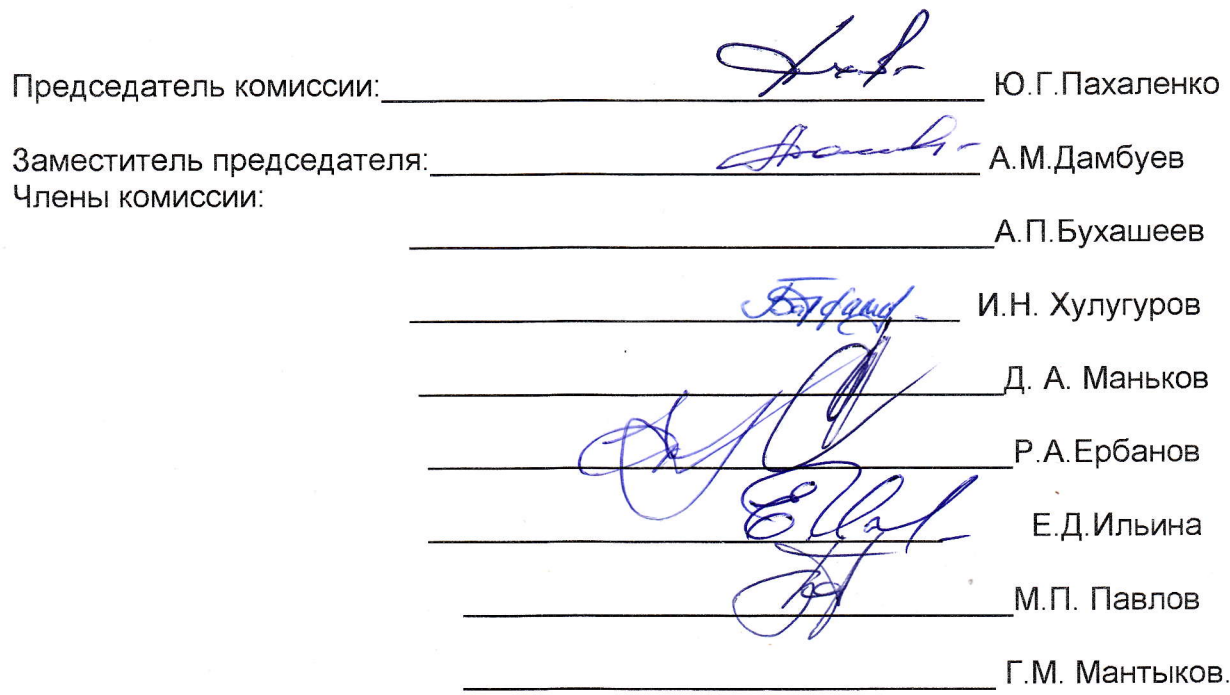 Председатель комиссии: Ю.Г.Пахаленко
Заместитель председателя: А.М.Дамбуев
Члены комиссии:
А.П.Бухашеев
И.Н. Хулугуров
Д. А. Маньков
Р.А.Ербанов
Е.Д.Ильина
М.П. Павлов
Г.М. Мантыков.